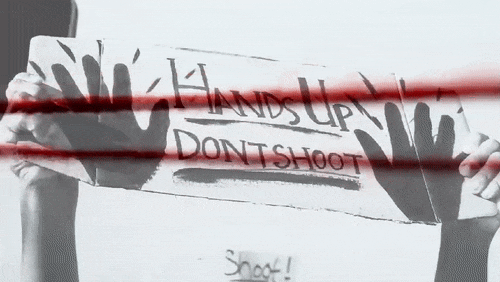 HANDS UP
DONT SHOOT
Shoot!